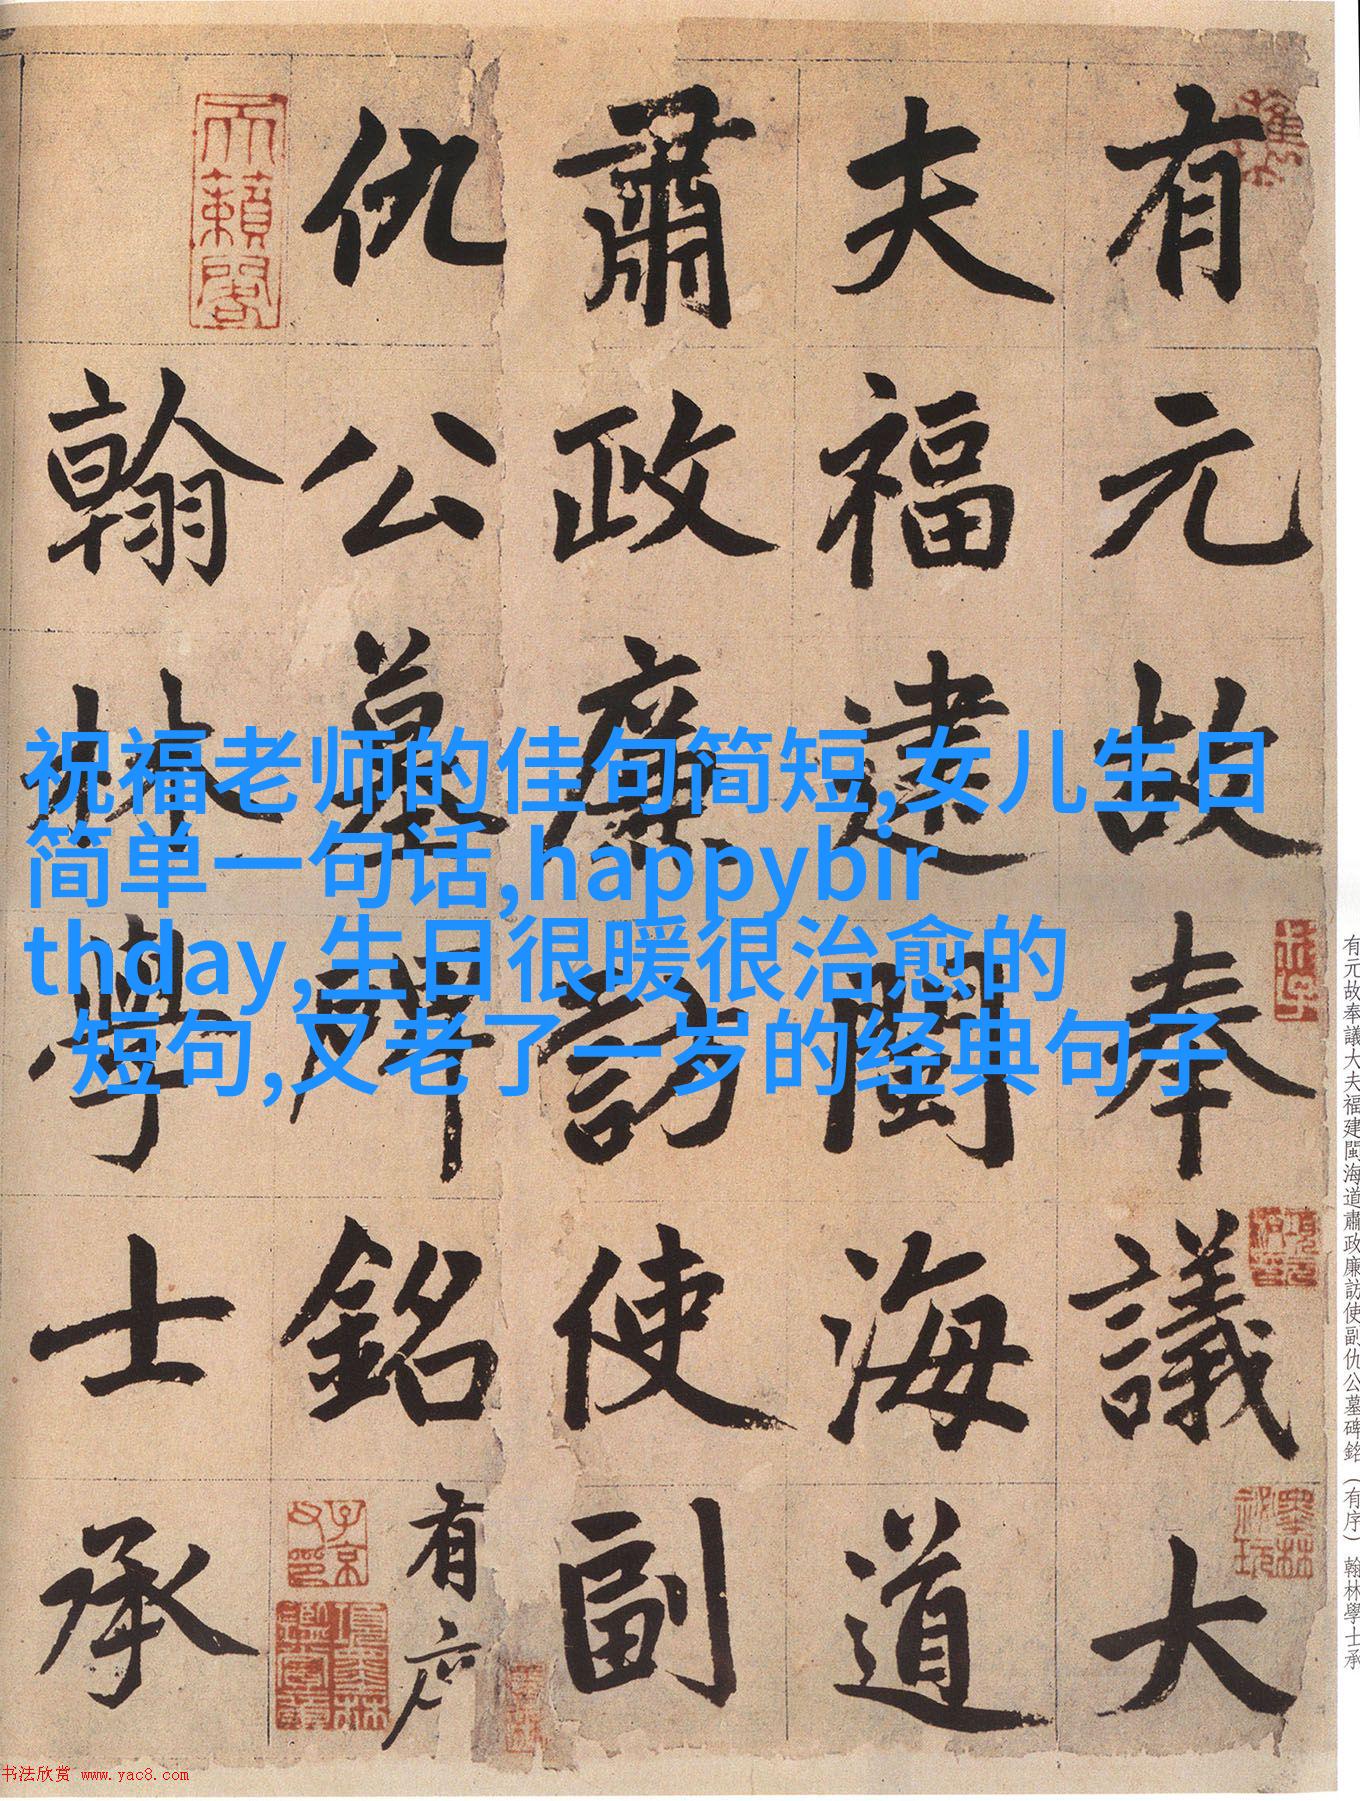 有元故奉議大
夫福建閩海道
肅政廉訪使副
仇公墓碑銘有序
翰林學士承
天籟閣
子京父印
項元汴印
墨林祕玩
祝福老师的佳句简短,女儿生日
简单一句话,happybir
thday,生日很暖很治愈的
短句,又老了一岁的经典句子
有元故奉議大夫福建閩海道肅政廉訪使副仇公墓碑銘（有序）翰林學士承
书法欣赏 www.yac8.com